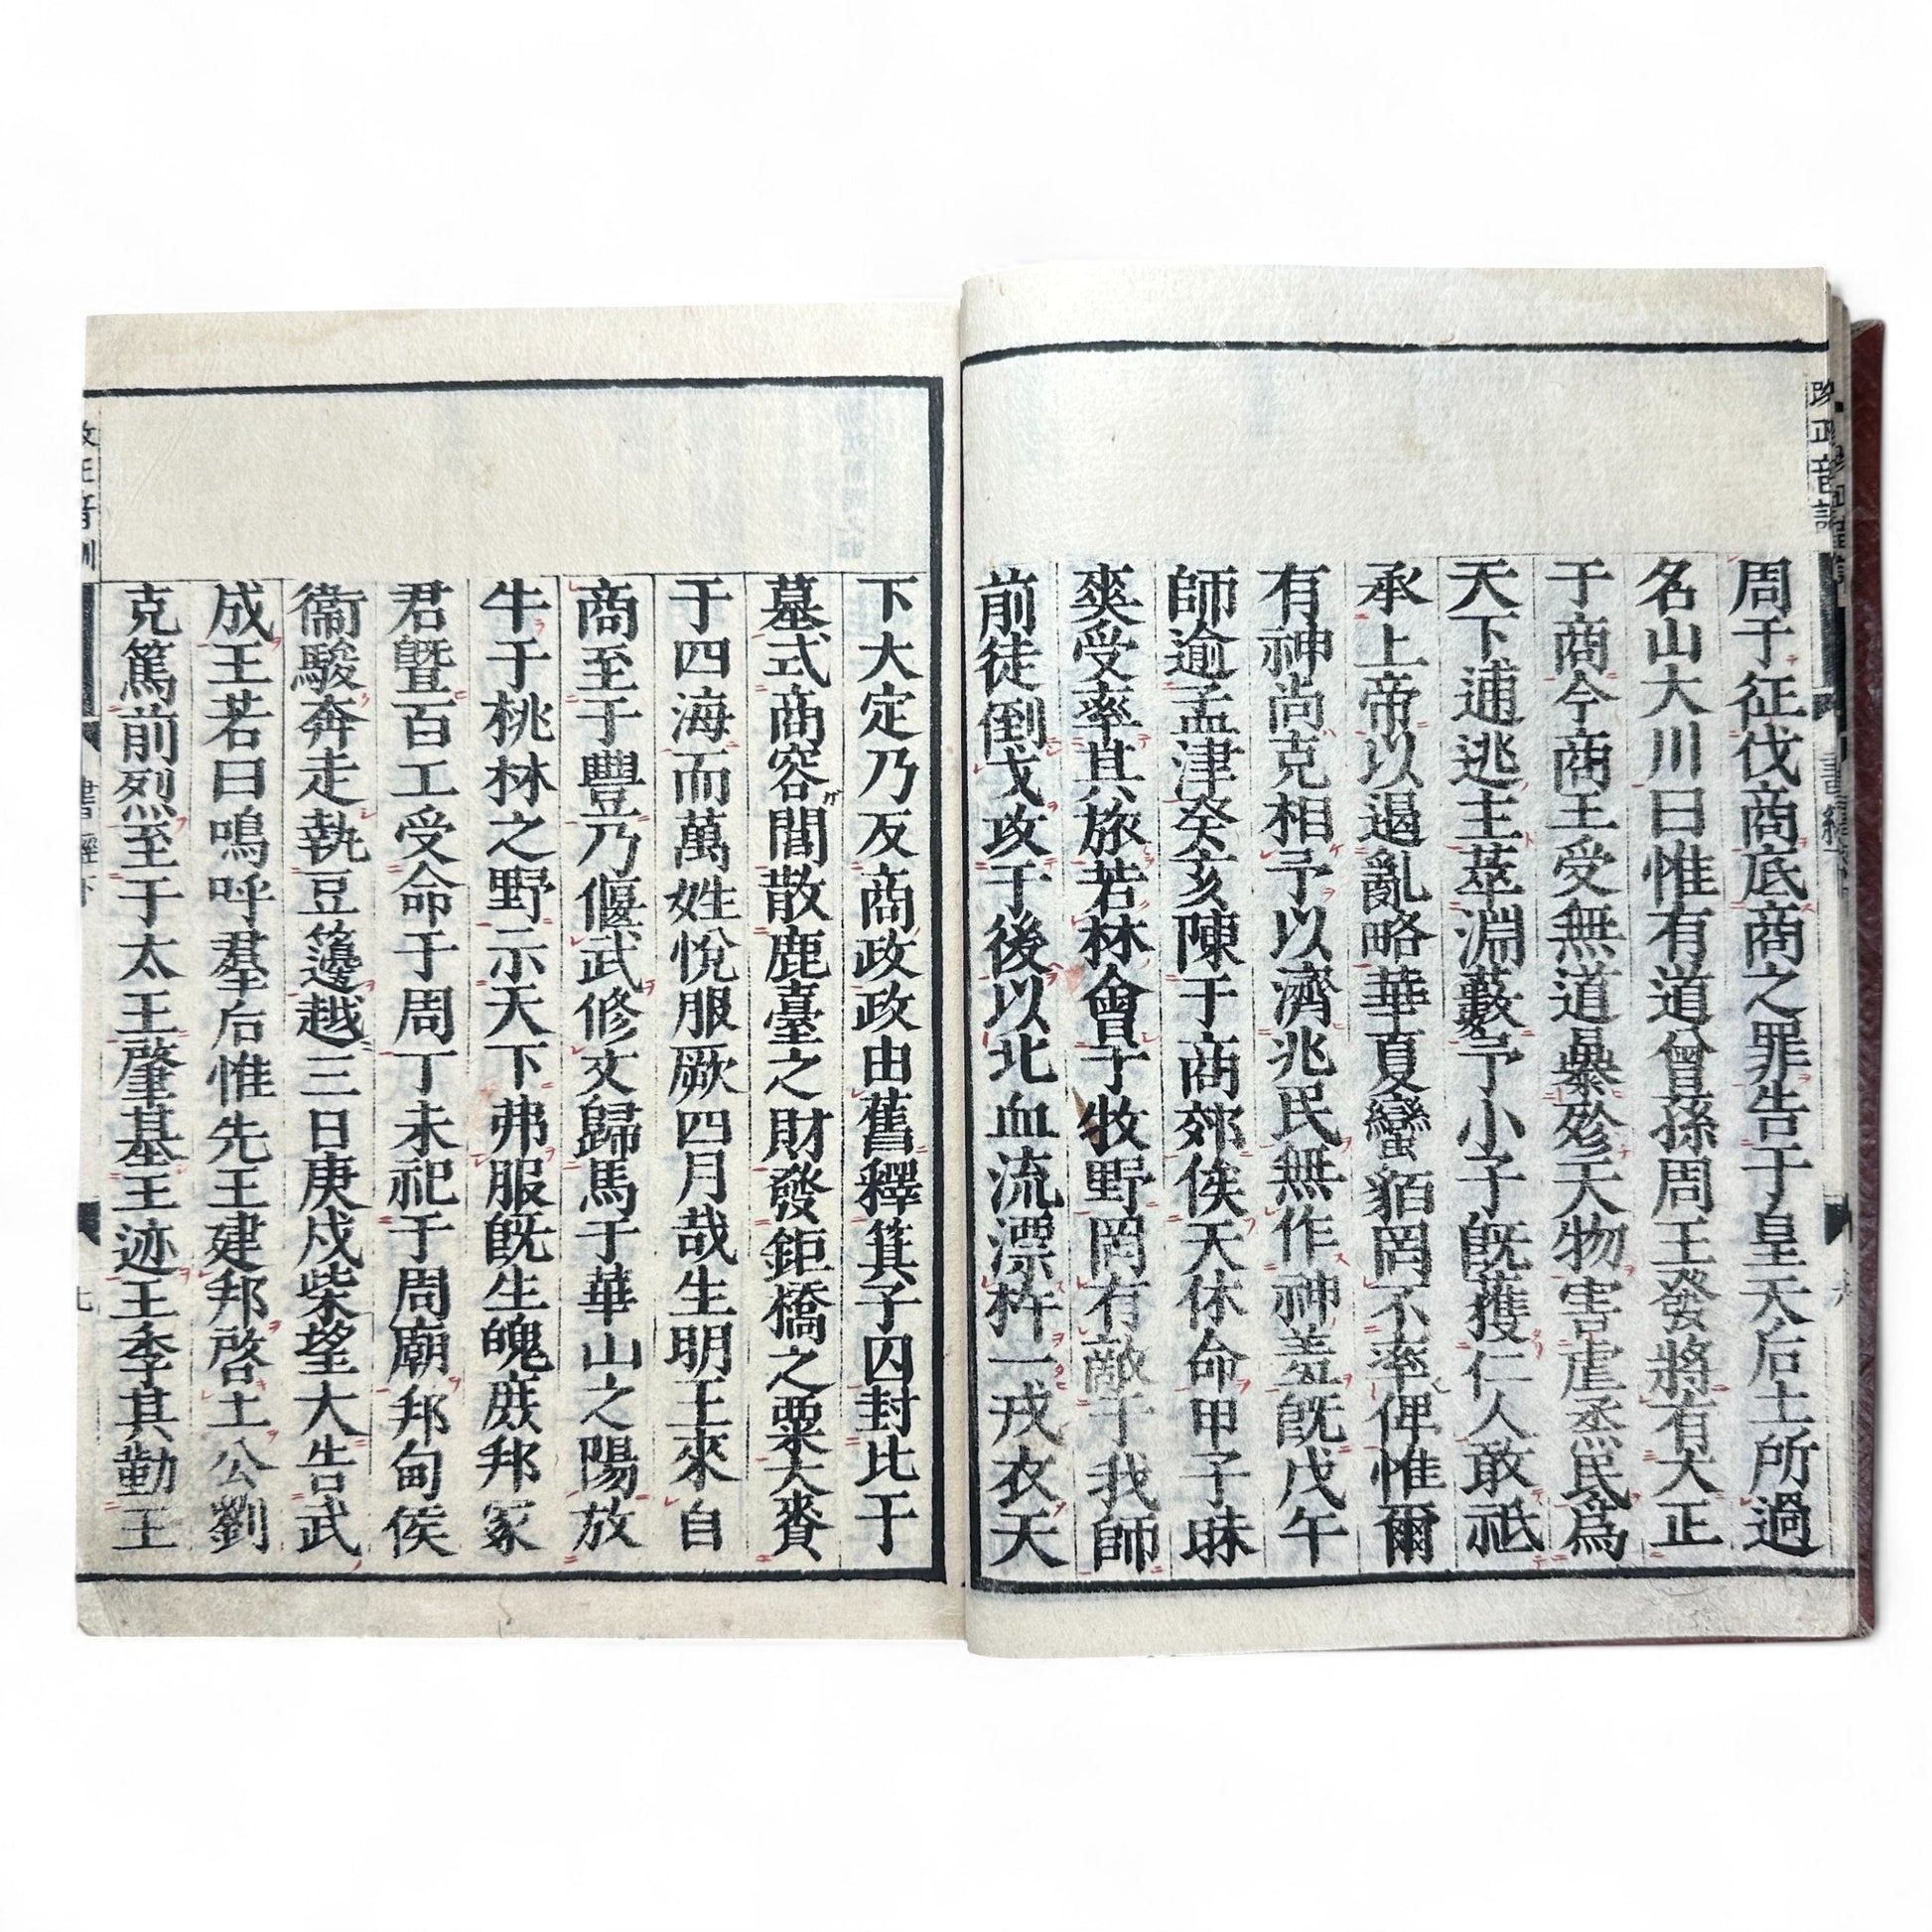 周于征伐商底商之罪告于皇天后土所過
名山大川曰惟有道曾孫周王發將有大正
于商今商王受無道㬥殄天物害虐烝民爲
天下逋逃主萃淵藪予小子旣獲仁人敢祇
承上帝以遏亂略華夏蠻貊罔不率俾惟爾
有神尚克相予以濟兆民無作神羞旣戊午
師逾孟津癸亥陳于商郊俟天休命甲子昧
爽受率其旅若林會于牧野罔有敵于我師
前徒倒戈攻于後以北血流漂杵一戎衣天
下大定乃反商政政由舊釋箕子囚封比干
墓式商容閭散鹿臺之財發鉅橋之粟大賚
于四海而萬姓悅服厥四月哉生明王來自
商至于豐乃偃武修文歸馬于華山之陽放
牛于桃林之野示天下弗服旣生魄庶邦冢
君曁百工受命于周丁未祀于周廟邦甸侯
衞駿奔走執豆籩越三日庚戌柴望大告武
成王若曰嗚呼羣后惟先王建邦啓土公劉
克篤前烈至于太王肇基王迹王季其勤王
改正音訓
書經下
七